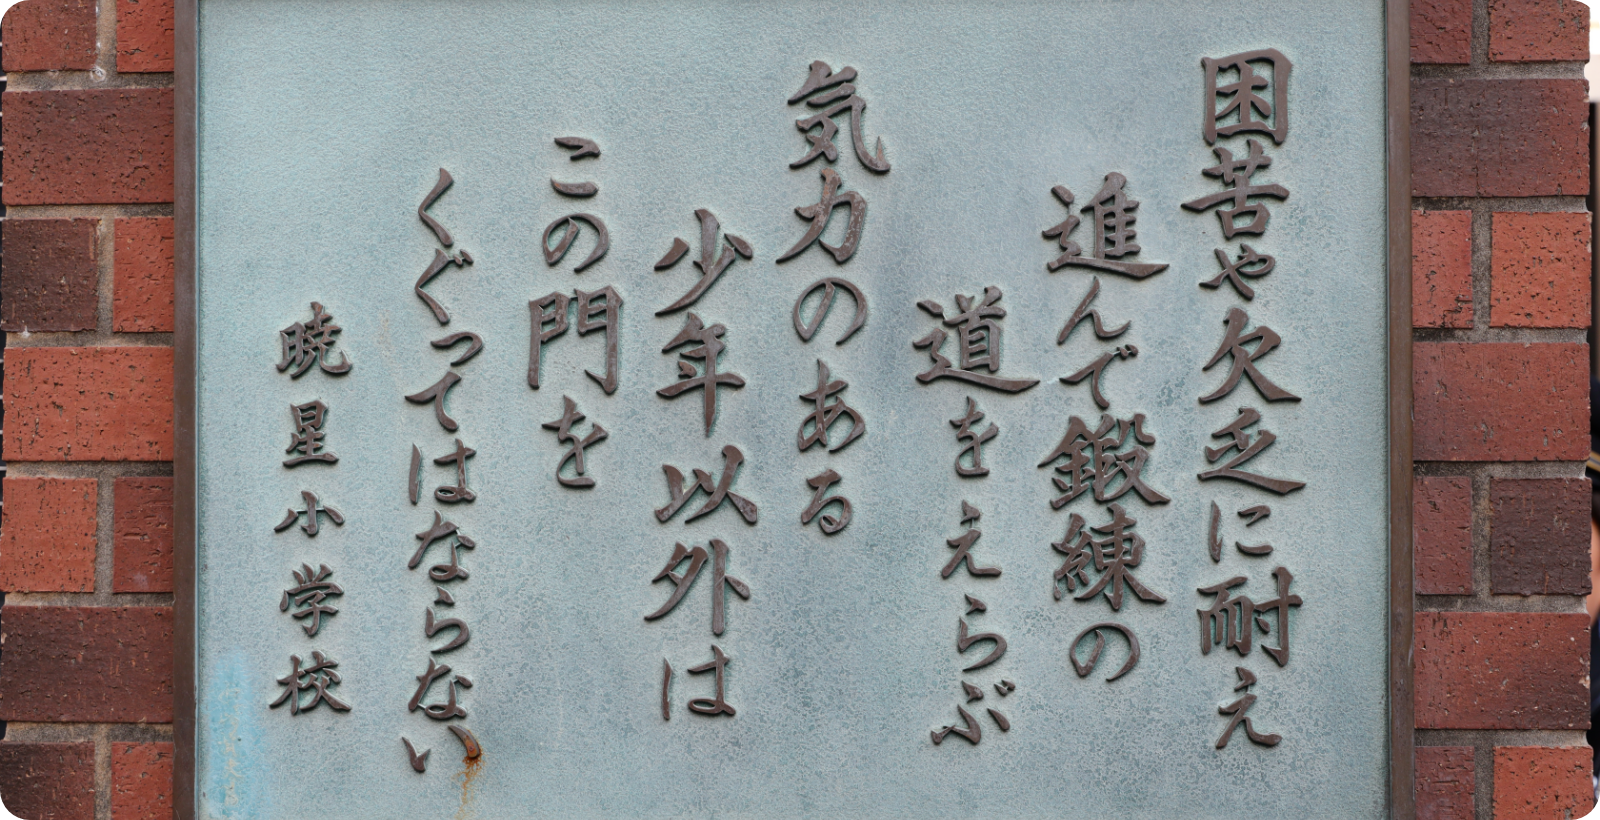 困苦や欠乏に耐え
進んで鍛練の
道をえらぶ
気力のある
少年以外は
この門を
くぐってはならない
暁星小学校